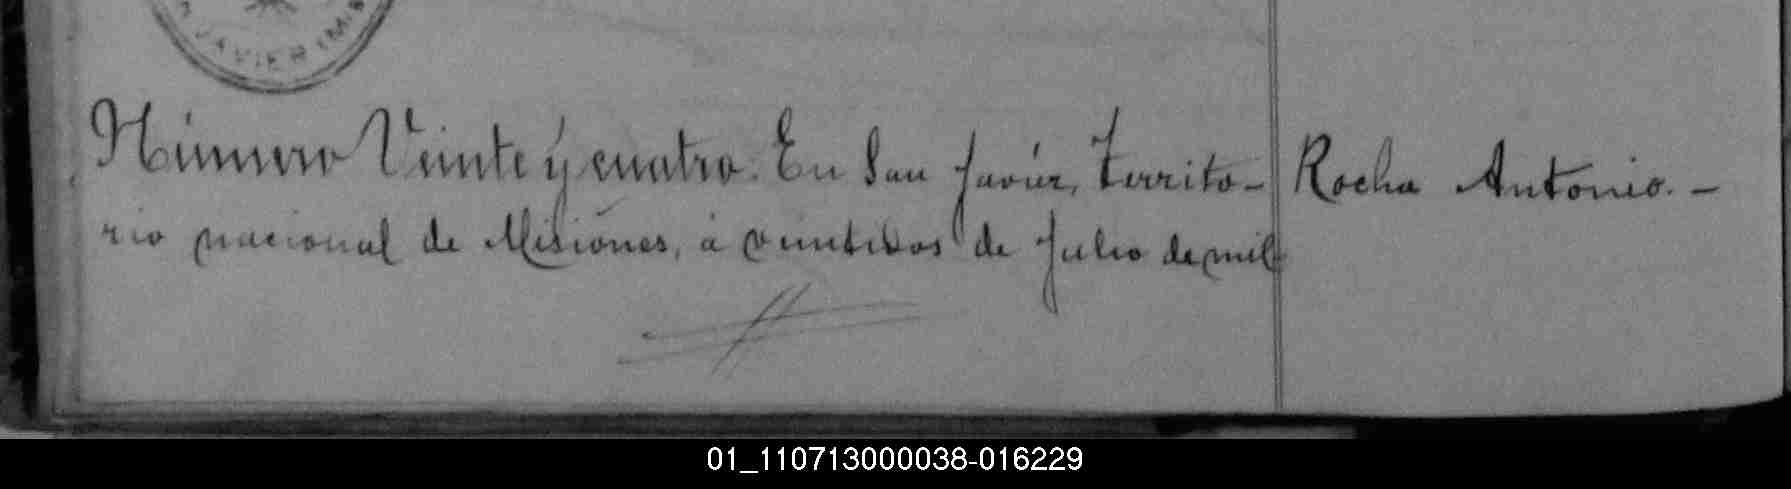 JAVIER (MIS
Número Veinte y cuatro. En San Javier, Territo-
rio nacional de Misiones, á veintidos de Julio de mil
Rocha Antonio. -
01_110713000038-016229